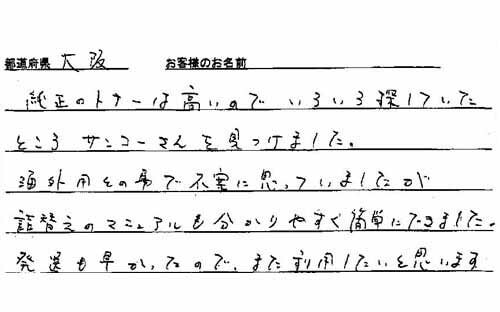 都道府県 大阪 お客様のお名前
純正のトナーは高いのでいろいろ探していた
ところサンコーさんを見つけました。
海外用その為で不安に思っていましたが
詰替えのマニュアルも分かりやすく簡単にできました。
発送も早かったので、また利用したいと思います